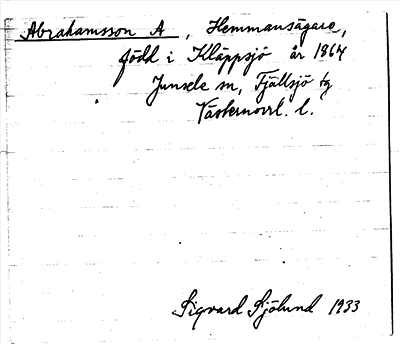 Abrahamsson A, Hemmansägare,
född i Kläppsjö år 1864
Junsele sn, Fjällsjö tg
Västernorrl. l.
Sigvard Sjölund 1933